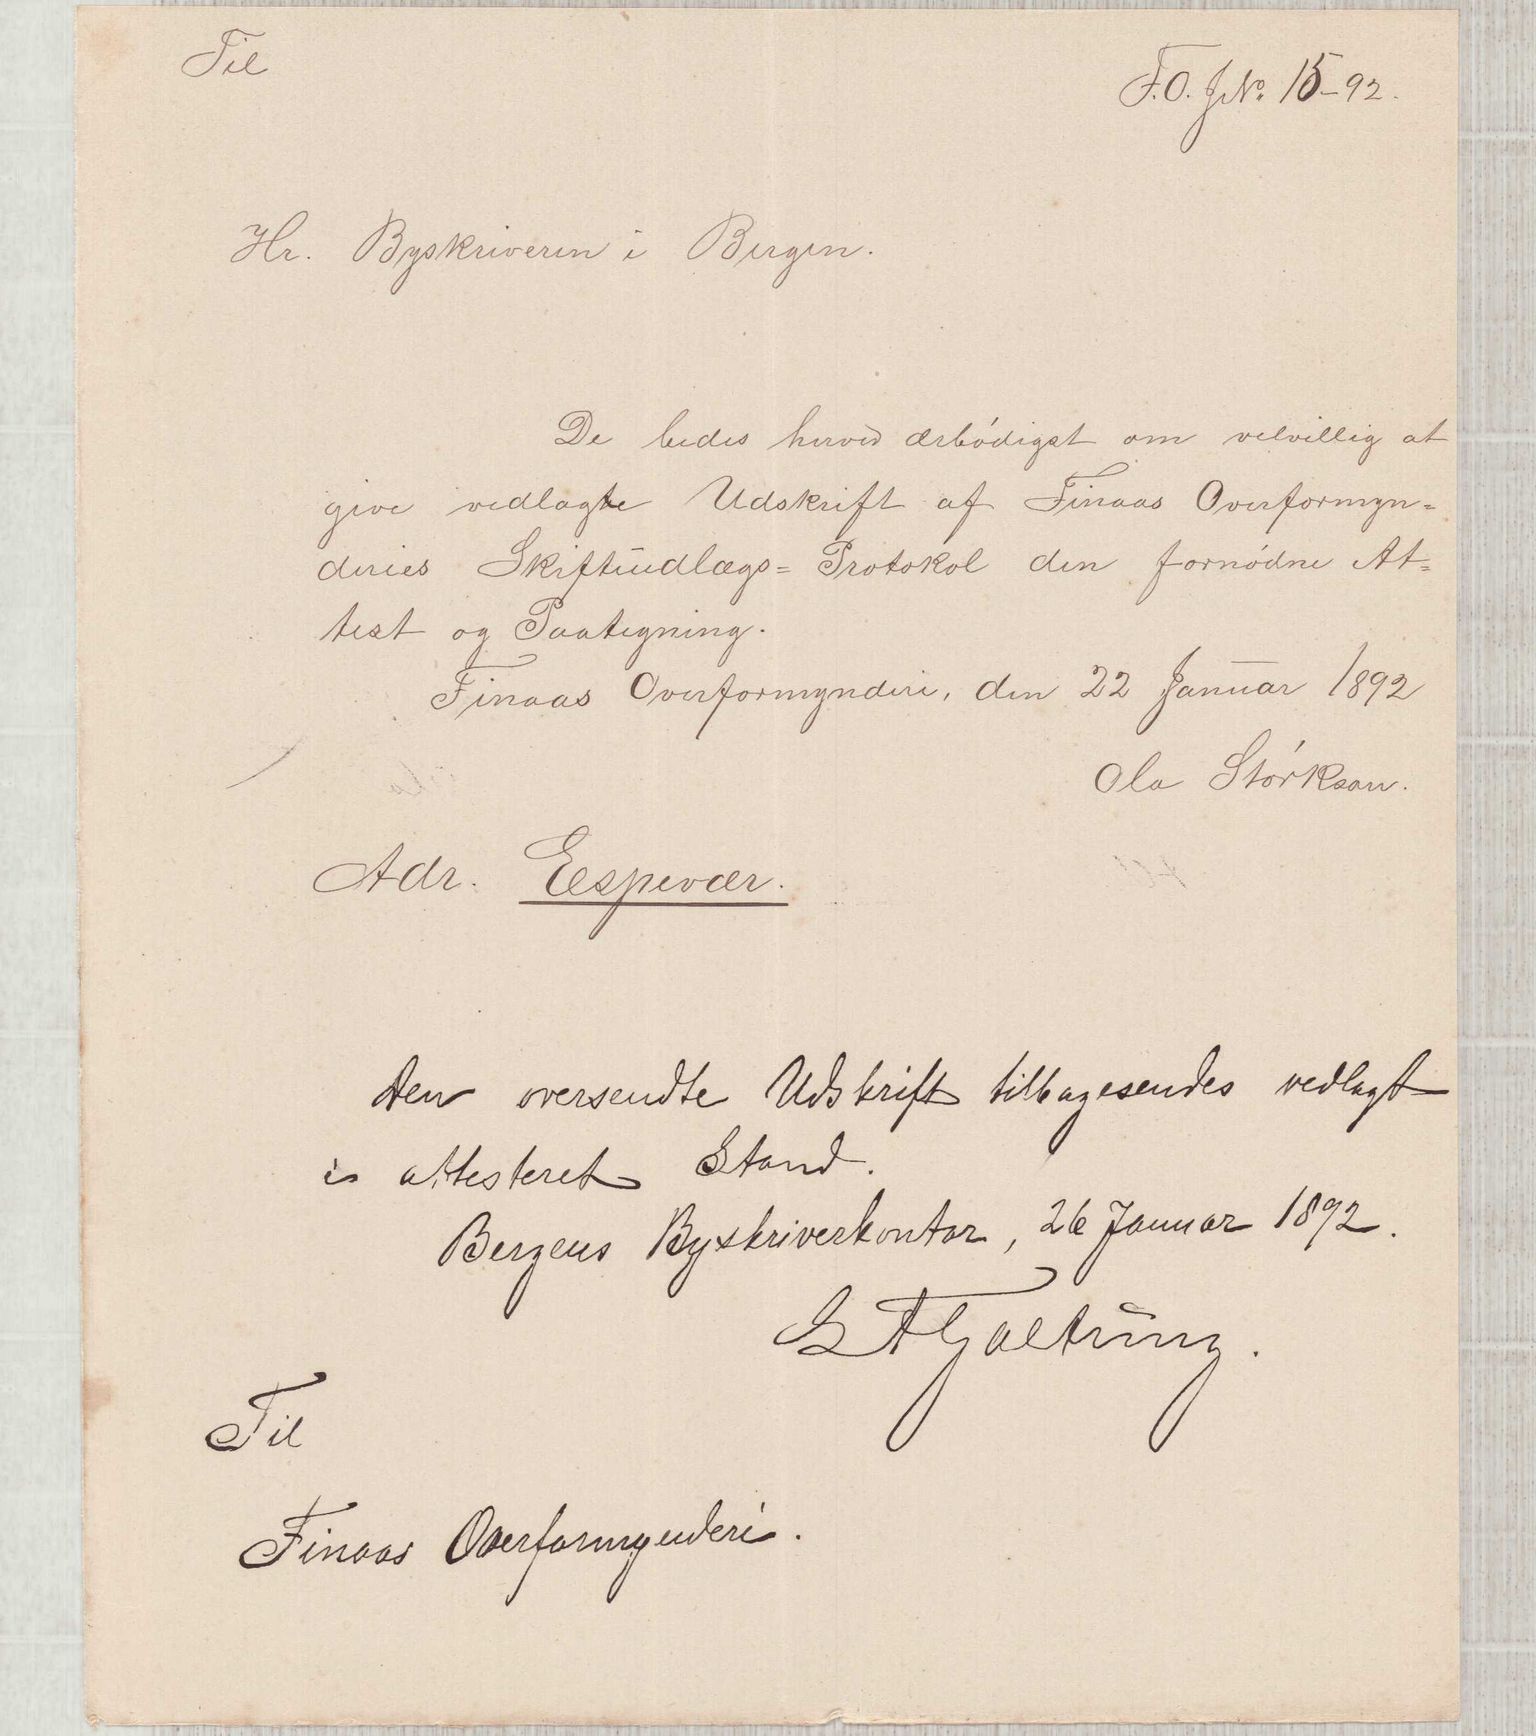 Til
F.O. JNo. 15-92.
Hr. Byskriveren i Bergen.
De bedes herved ærbödigst om velvillig at
give vedlagte Udskrift af Finaas Overformyn=
deries Skifteudlægs=Protokol den fornödne At=
test og Paategning.
Finaas Overformynderi, den 22 Januar 1892
Ola Störkson.
Adr. Espevær.
Den oversendte Udskrift tilbagesendes vedlagt
i attesteret Stand.
Bergens Byskriverkontor, 26 Januar 1892.
Galtung.
Til
Finaas Overformynderi.